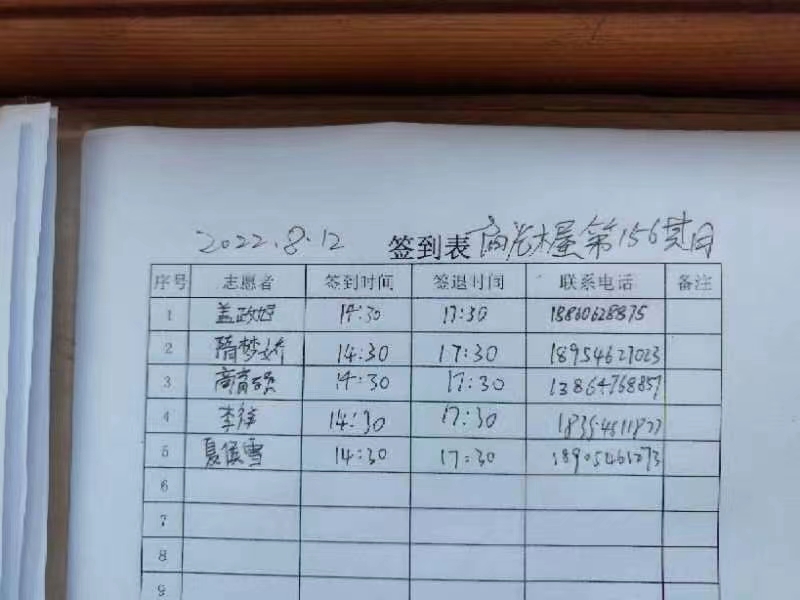 2022.8.12 签到表 第156期
序号 志愿者 签到时间 签退时间 联系电话 备注
1 盖政 14:30 17:30 18860628875
2 隋梦娇 14:30 17:30 18954627023
3 14:30 17:30 13864768857
4 李 14:30 17:30
5 夏侯雪 14:30 17:30 18905461273
6
7
8
9